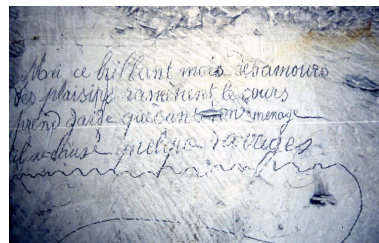 Mai ce brillant mois des amours
des plaisirs ramenent le cours
prend garde que dans ton menage
il ne cause quelque ravages